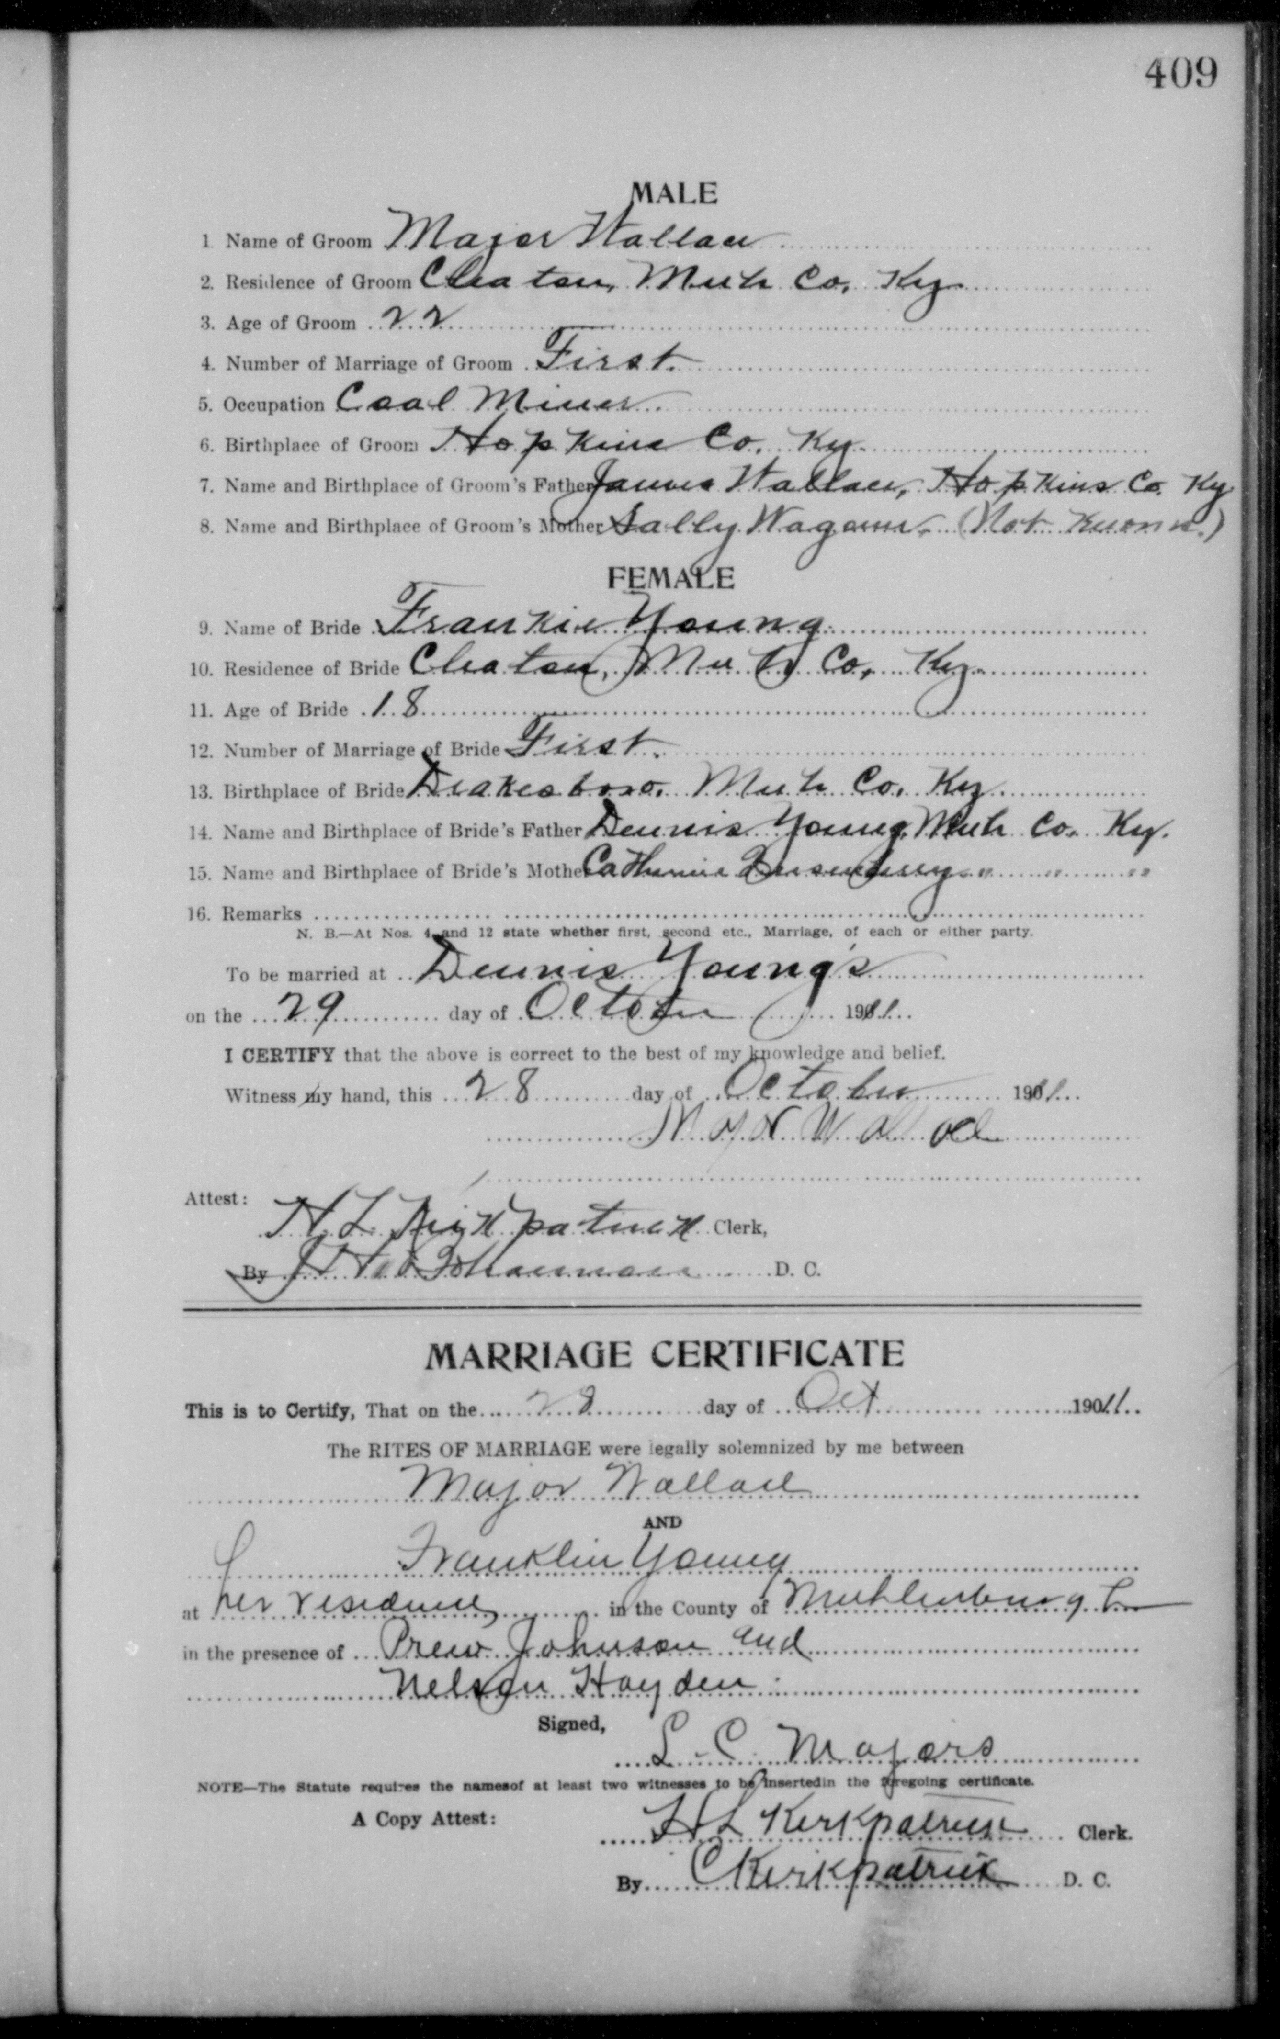 409
MALE
1 Name of Groom Major Wallace
2. Residence of Groom Cleaton, Muh Co. Ky.
3. Age of Groom 22
4. Number of Marriage of Groom First.
5. Occupation Coal Miner.
6. Birthplace of Groom Hopkins Co. Ky.
7. Name and Birthplace of Groom's Father James Wallace, Hopkins Co. Ky
8. Name and Birthplace of Groom's Mother Sally Wagoner. (Not Known.)
FEMALE
9. Name of Bride Frankie Young.
10. Residence of Bride Cleaton, Muh Co, Ky.
11. Age of Bride 18
12. Number of Marriage of Bride First.
13. Birthplace of Bride Drakesboro. Muh Co. Ky.
14. Name and Birthplace of Bride's Father Dennis Young, Muh Co. Ky.
15. Name and Birthplace of Bride's Mother Catherine " " "
16. Remarks
N. B.—At Nos. 4 and 12 state whether first, second etc., Marriage, of each or either party.
To be married at Dennis Young's
on the 29 day of October 1911
I CERTIFY that the above is correct to the best of my knowledge and belief.
Witness my hand, this 28 day of October 1911
Major Wallace
Attest:
H. L. Kirkpatrick Clerk,
By D. C.
MARRIAGE CERTIFICATE
This is to Certify, That on the 28 day of Oct 1911
The RITES OF MARRIAGE were legally solemnized by me between
Major Wallace
AND
Franklin Young
at her residence, in the County of Muhlenburg
in the presence of Prew Johnson and
Nelson Hayden.
Signed,
L. C. Majors
NOTE—The Statute requires the namesof at least two witnesses to be insertedin the foregoing certificate.
A Copy Attest:
H L Kirkpatrick Clerk.
By C Kirkpatrick D. C.